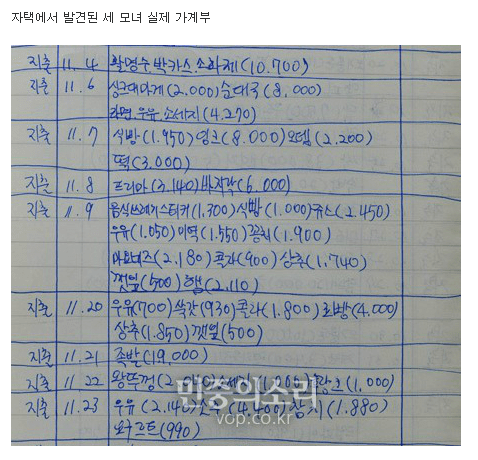 자택에서 발견된 세 모녀 실제 가계부
지출 11. 4 활명수.박카스.소화제(10.700)
지출 11. 6 싱크대마개(2.000)순대국(8.000)
라면.우유.소세지(4.270)
지출 11. 7 식빵(1.950)잉크(8.000)오뎅(2.200)
떡(3.000)
지출 11. 8 (3.140)바지락(6.000)
지출 11. 9 음식쓰레기스티커(1.300)식빵(1.000)쥬스(2.450)
우유(1.050)미역(1.550)꽁치(1.900)
마요네즈(2.180)콜라(900)상추(1.740)
깻잎(500)햄(2.110)
지출 11. 20 우유(700)쑥갓(930)콜라(1.800)(4.000)
상추(1.850)깻잎(500)
지출 11. 21 족발(19,000)
지출 11. 22 왕뚜껑(2 (1,000)
지출 11. 23 우유(2.140)소주(4.400)참치(1.880)
요구르트(990)
민중의소리
vop.co.kr